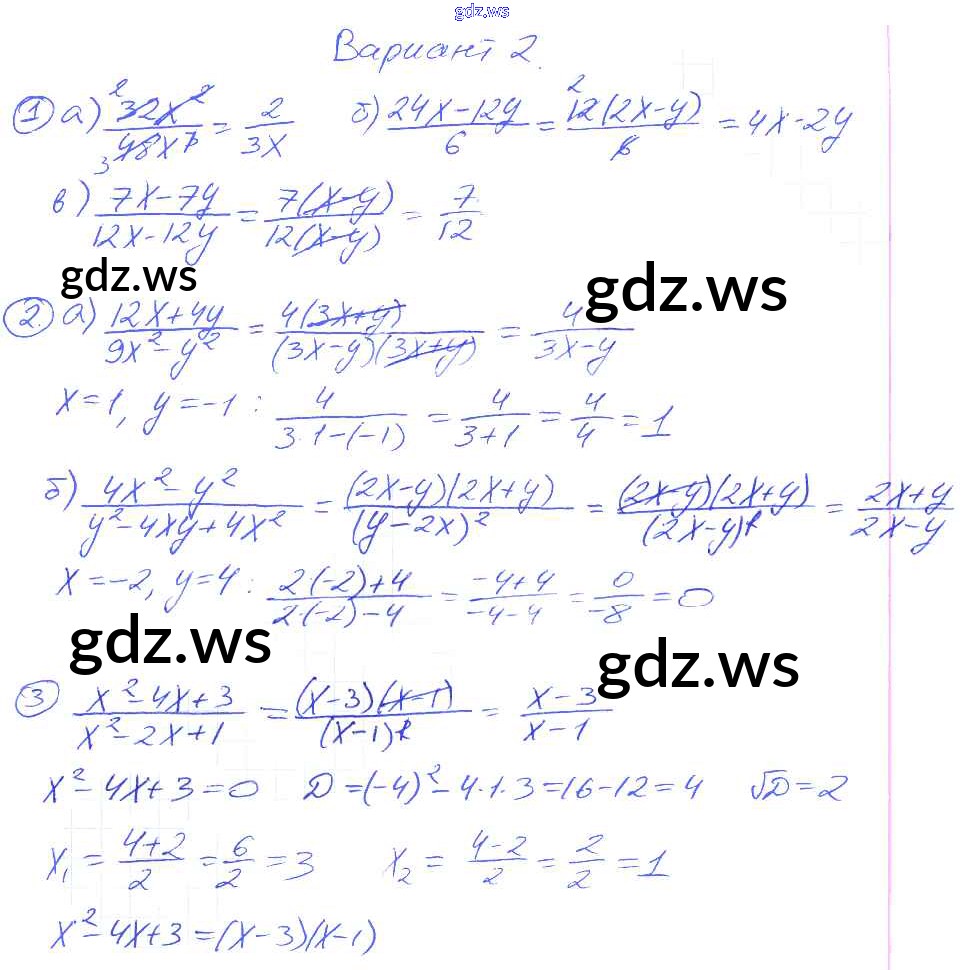 gdz.ws
Вариант 2.
① а) 32x²/48x³ = 2/3x б) (24x-12y)/6 = 12(2x-y)/6 = 4x-2y
в) (7x-7y)/(12x-12y) = 7(x-y)/12(x-y) = 7/12
gdz.ws
gdz.ws
② а) (12x+4y)/(9x²-y²) = 4(3x+y)/(3x-y)(3x+y) = 4/(3x-y)
x=1, y=-1: 4/(3·1-(-1)) = 4/(3+1) = 4/4 = 1
б) (4x²-y²)/(y²-4xy+4x²) = (2x-y)(2x+y)/(y-2x)² = (2x-y)(2x+y)/(2x-y)² = (2x+y)/(2x-y)
x=-2, y=4: (2·(-2)+4)/(2·(-2)-4) = (-4+4)/(-4-4) = 0/-8 = 0
gdz.ws
gdz.ws
③ (x²-4x+3)/(x²-2x+1) = (x-3)(x-1)/(x-1)² = (x-3)/(x-1)
x²-4x+3=0 D=(-4)²-4·1·3=16-12=4 √D=2
x₁ = (4+2)/2 = 6/2 = 3 x₂ = (4-2)/2 = 2/2 = 1
x²-4x+3=(x-3)(x-1)